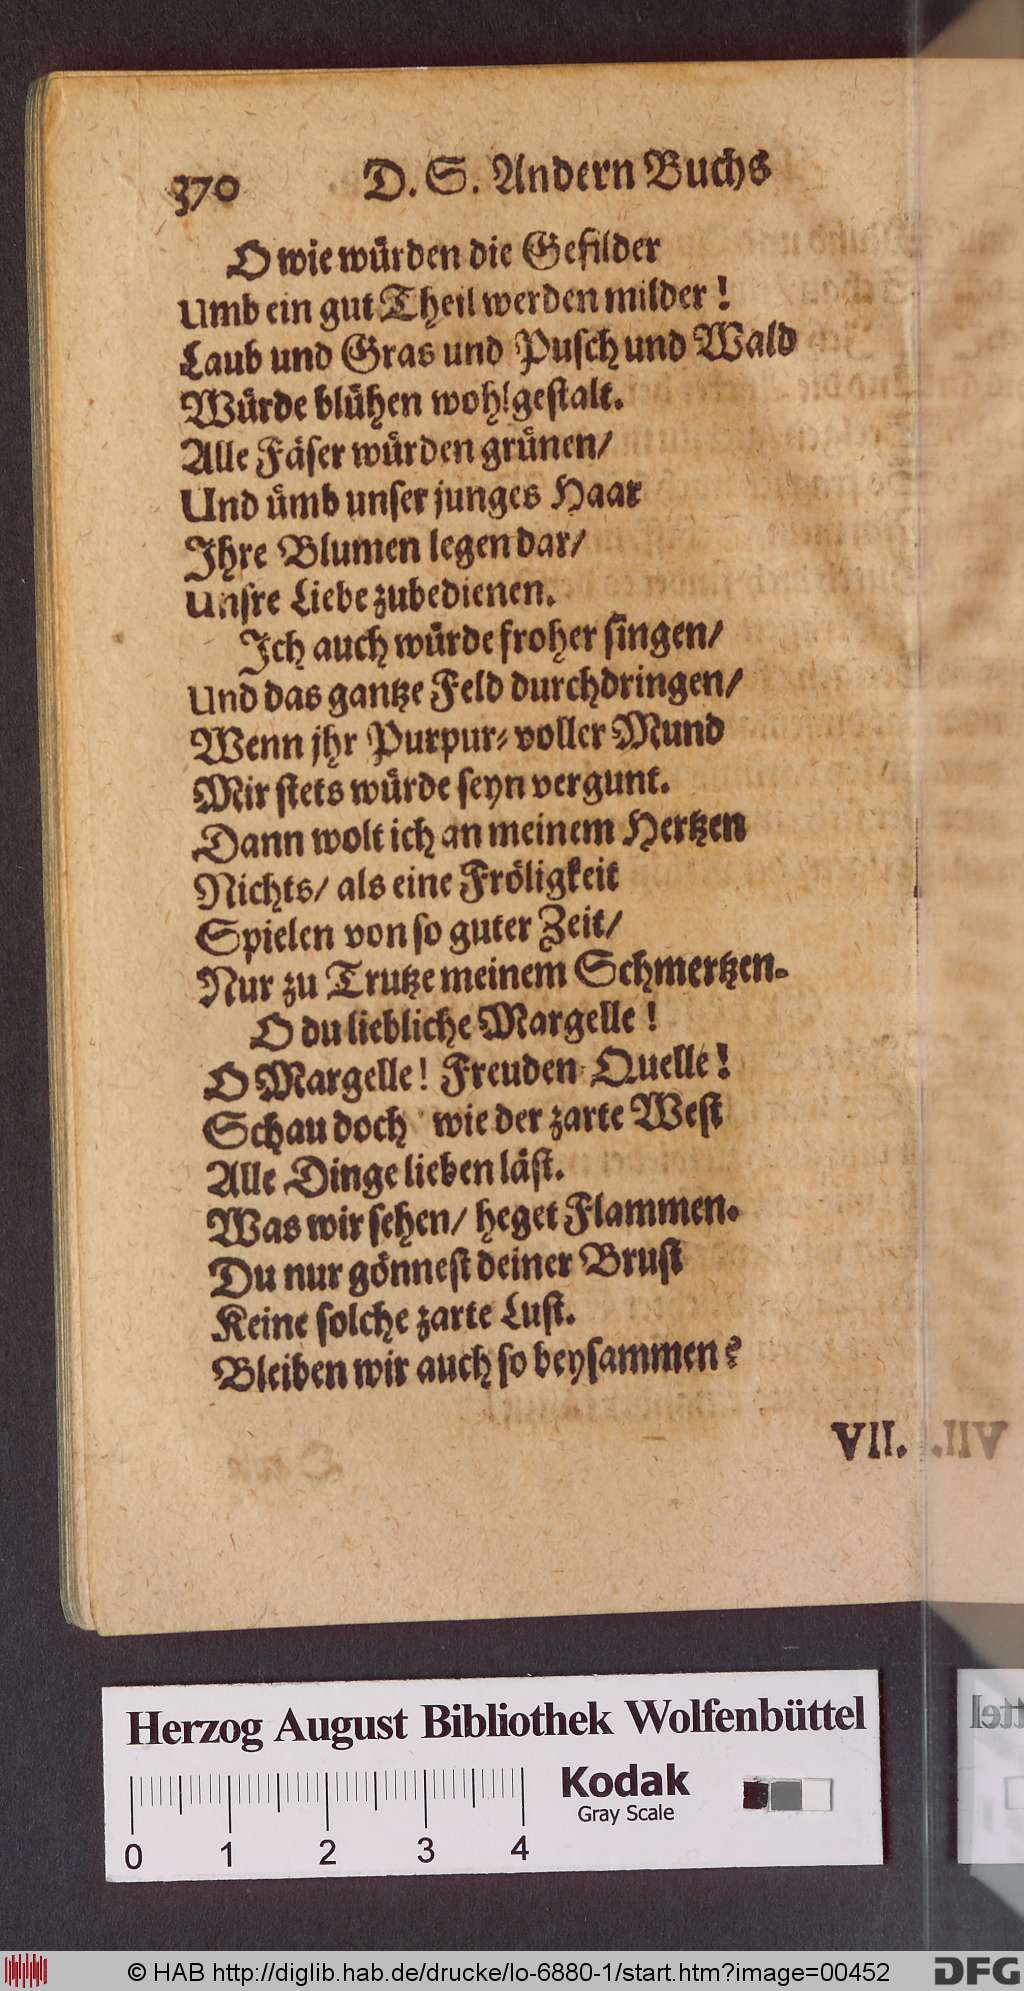 370 D. S. Andern Buchs
O wie würden die Gefilder
Umb ein gut Theil werden milder!
Laub und Gras und Pusch und Wald
Würde blühen wohlgestalt.
Alle Fäser würden grünen/
Und ümb unser junges Haar
Ihre Blumen legen dar/
Unsre Liebe zubedienen.
Ich auch würde froher singen/
Und das gantze Feld durchdringen/
Wenn jhr Purpur-voller Mund
Mir stets würde seyn vergunt.
Dann wolt ich an meinem Hertzen
Nichts/ als eine Fröligkeit
Spielen von so guter Zeit/
Nur zu Trutze meinem Schmertzen.
O du liebliche Margelle!
O Margelle! Freuden-Quelle!
Schau doch wie der zarte West
Alle Dinge lieben läst.
Was wir sehen/ heget Flammen.
Du nur gönnest deiner Brust
Keine solche zarte Lust.
Bleiben wir auch so beysammen?
VII.
Herzog August Bibliothek Wolfenbüttel
Kodak
Gray Scale
0 1 2 3 4
© HAB http://diglib.hab.de/drucke/lo-6880-1/start.htm?image=00452
DFG